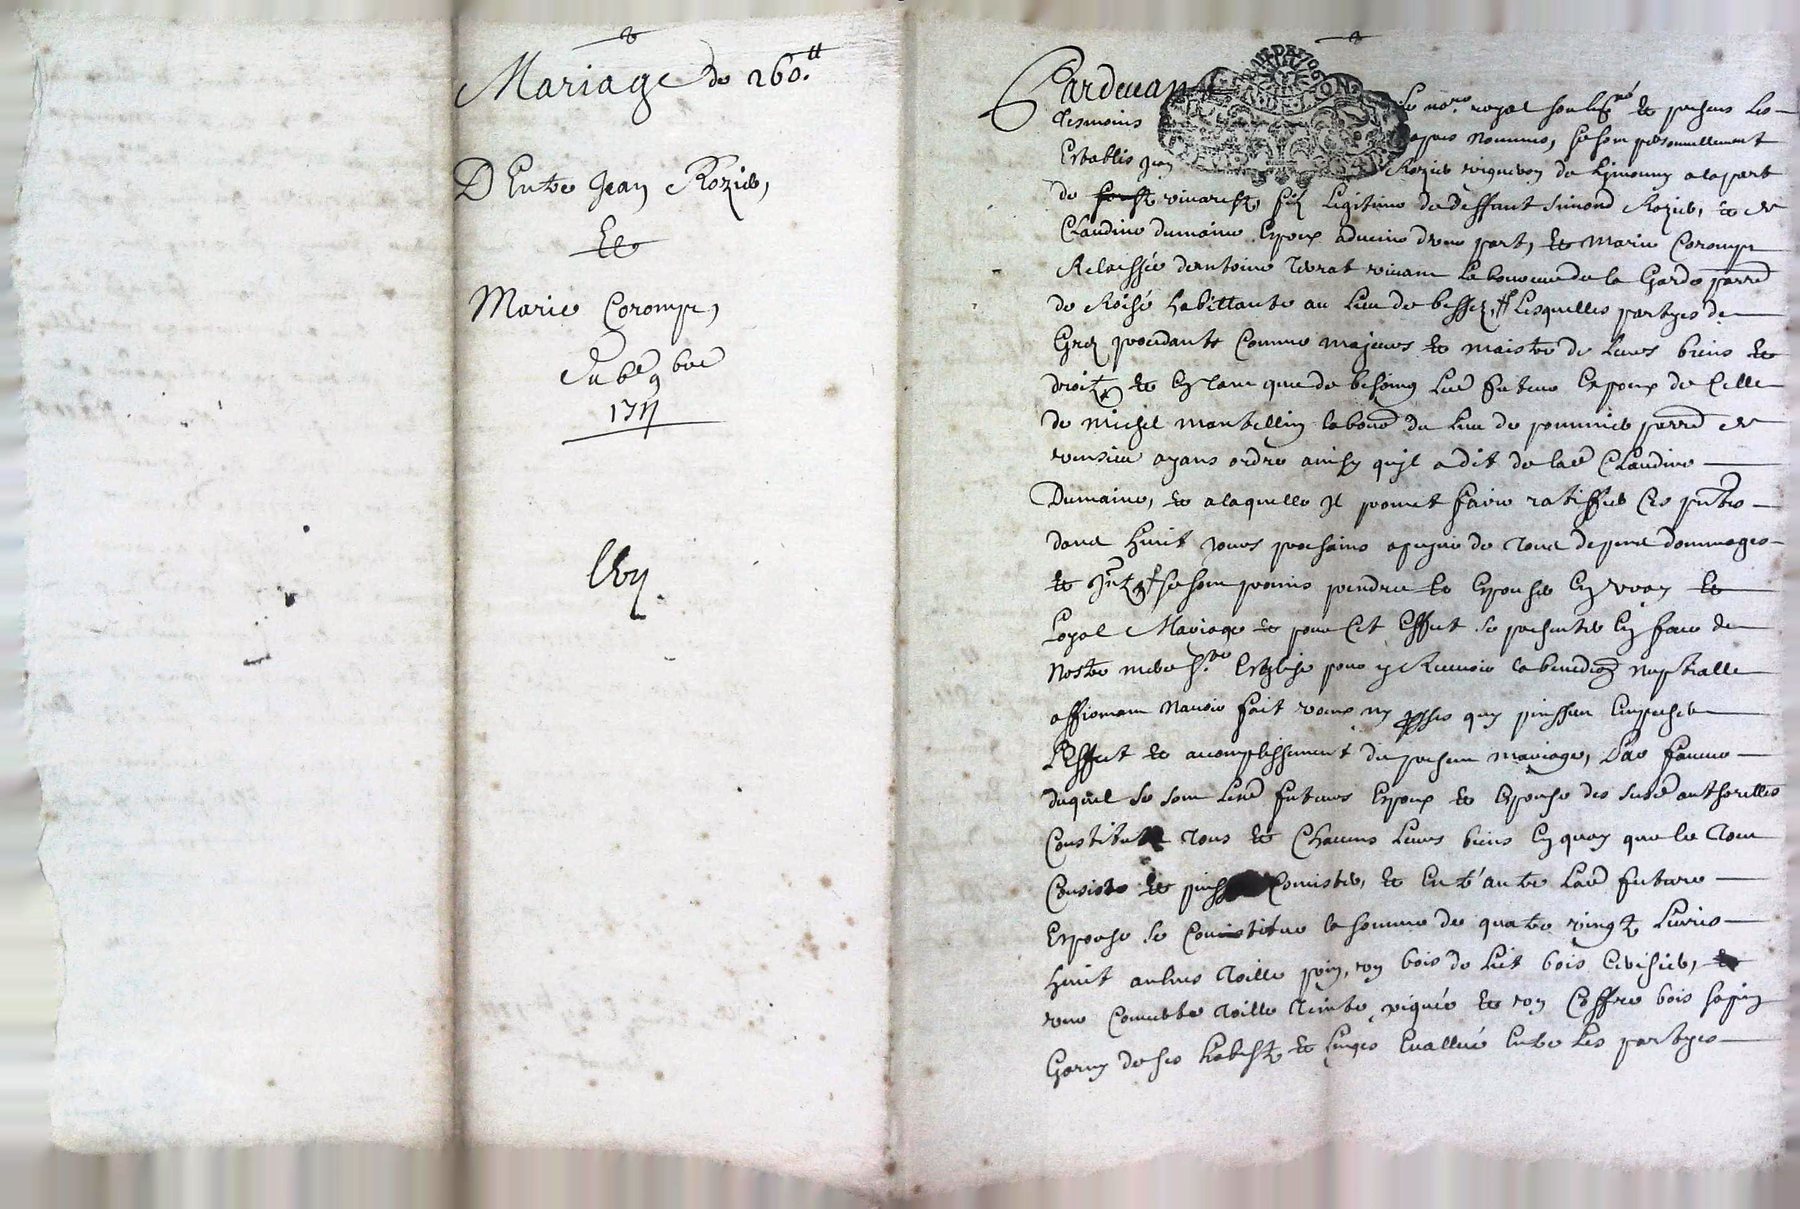 Mariage de 260.tt
D Entre Jean Rozier,
Et
Marie Corompt,
du 9 bre
1711
Pardevant le no.re royal soub.né et presens les
tesmoins apres nommes, se son personnellement
Establis Jean Rozier vigneron de Limonny a la part
de vivarest, filz Legitime de deffunt Simond Rozier, et de
Claudine dumaine Espoux advenir d'une part, et Marie Corompt
Relaissée d'Antoine vivant laboureur de la Garde parre
de Roisé habittante au lieu de bessez, Lesquelles partyes de
Grez proceddants Comme majeurs et maistre de Leurs biens et
droitz et En tant que de besoing Led futeur Espoux de Celle
de Michel mantellin laboure du lieu de pommier parre de
ayans ordre ainsy qu'jl a dit de lad Claudine
Dumaine, et a laquelle Jl promet faire ratiffier Ces pntes
dans huict jours prochains a peyne de tous depens dommages
et se son promis prendre et Espouser En vray et
Loyal Mariage et pour Cet Effect se presenter En face de
Nostre mere Ste Esglize pour y Recevoir la benedion nuptialle
affirmans N'avoir fait veux ny qui puissen Empescher
L'Effect et acomplissement du presen mariage, En faveur
duquel se son Lesd futeurs Espoux et Espouse des susd authorittes
Constitué tous et Chacuns Leurs biens En quoy que le tout
Consiste et puisse Consister, et Entr'autre Lad future
Espouse se Constitue la somme de quatre vingt Livres
huit aulnes toille prin, un bois de lict bois Cerisier, et
une Couverte toille teinte piquée et un Coffre bois sapin
Garny de ses habist et linges Evallué Entre Les partyes